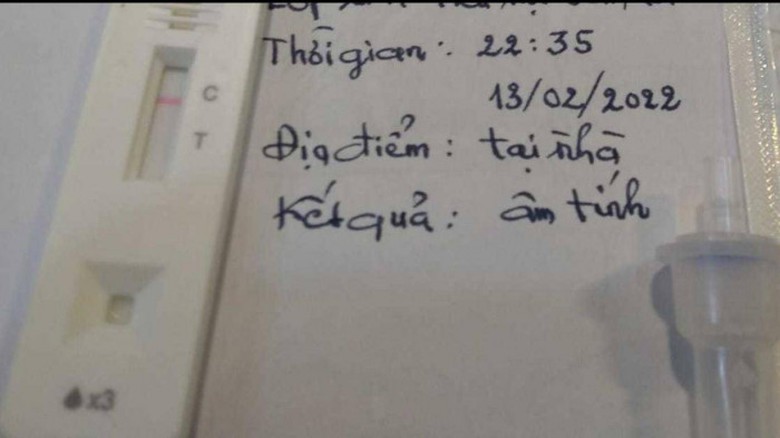 Thời gian: 22:35
13/02/2022
Địa điểm: tại nhà
Kết quả: âm tính
C
T
x3